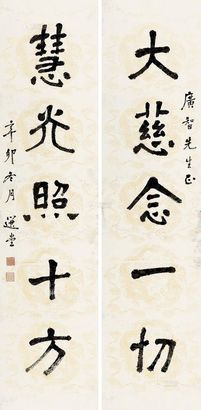 廣智先生正
大慈念一切
慧光照十方
辛卯冬月 選堂